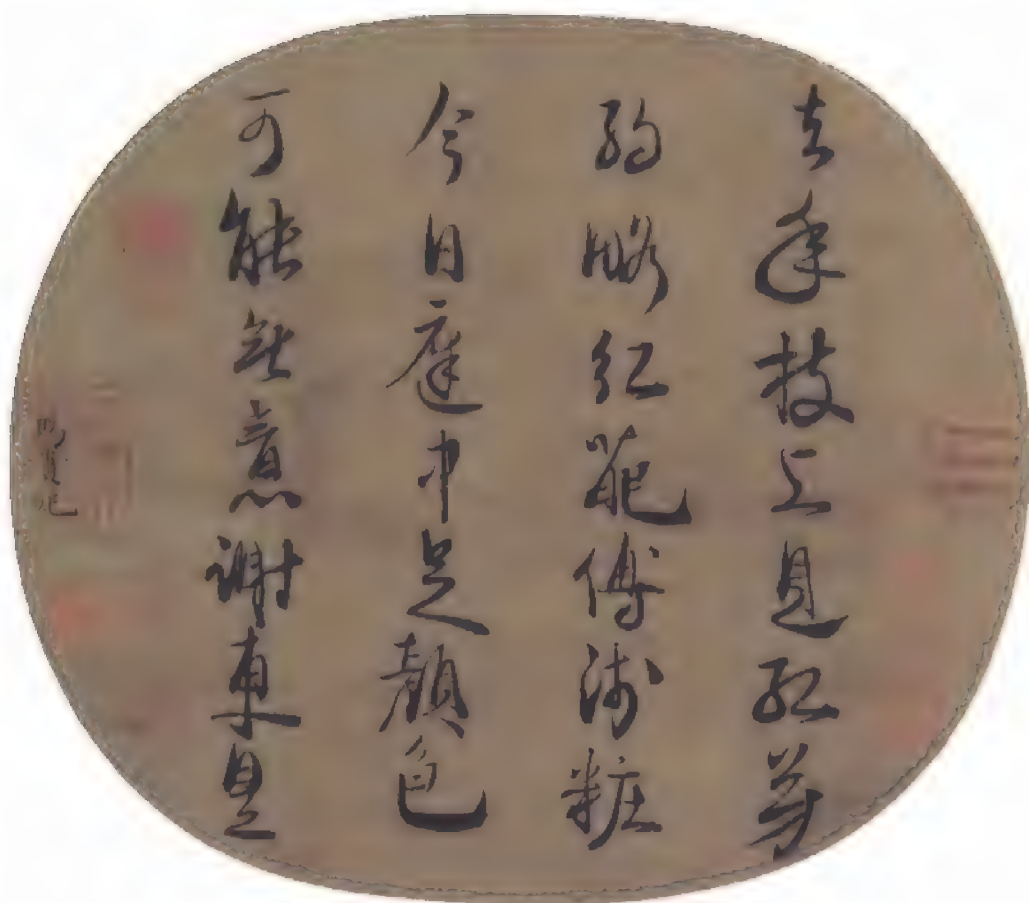 去年枝上見紅芳
約略紅葩傅淺粧
今日庭中足顏色
可能無意謝東皇